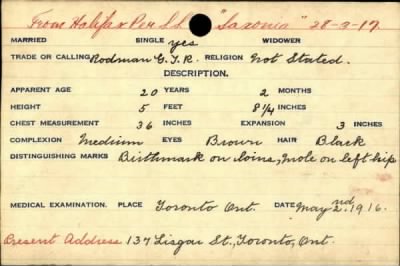 From Halifax Per S.S. "Saxonia" 28-3-17.
MARRIED SINGLE yes WIDOWER
TRADE OR CALLING Rodman G.T.R. RELIGION Not Stated.
DESCRIPTION.
APPARENT AGE 20 YEARS 2 MONTHS
HEIGHT 5 FEET 8 1/4 INCHES
CHEST MEASUREMENT 36 INCHES EXPANSION 3 INCHES
COMPLEXION Medium EYES Brown HAIR Black
DISTINGUISHING MARKS Birthmark on loins, mole on left hip
MEDICAL EXAMINATION. PLACE Toronto Ont. DATE May 2nd 1916.
Present Address 137 Lisgar St., Toronto, Ont.